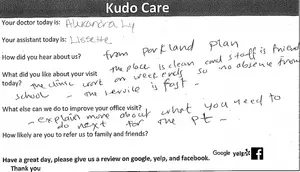 Kudo Care
Your doctor today is: Alexandra Ly
Your assistant today is: Lissette
How did you hear about us? from Parkland plan
What did you like about your visit today? the place is clean and staff is friend
the clinic work on weekends so no absence from
school - the servise is fast -
What else can we do to improve your office visit?
- explain more about what you need to
do next for the pt -
How likely are you to refer us to family and friends?
Google yelp f
Have a great day, please give us a review on google, yelp, and facebook.
Thank you